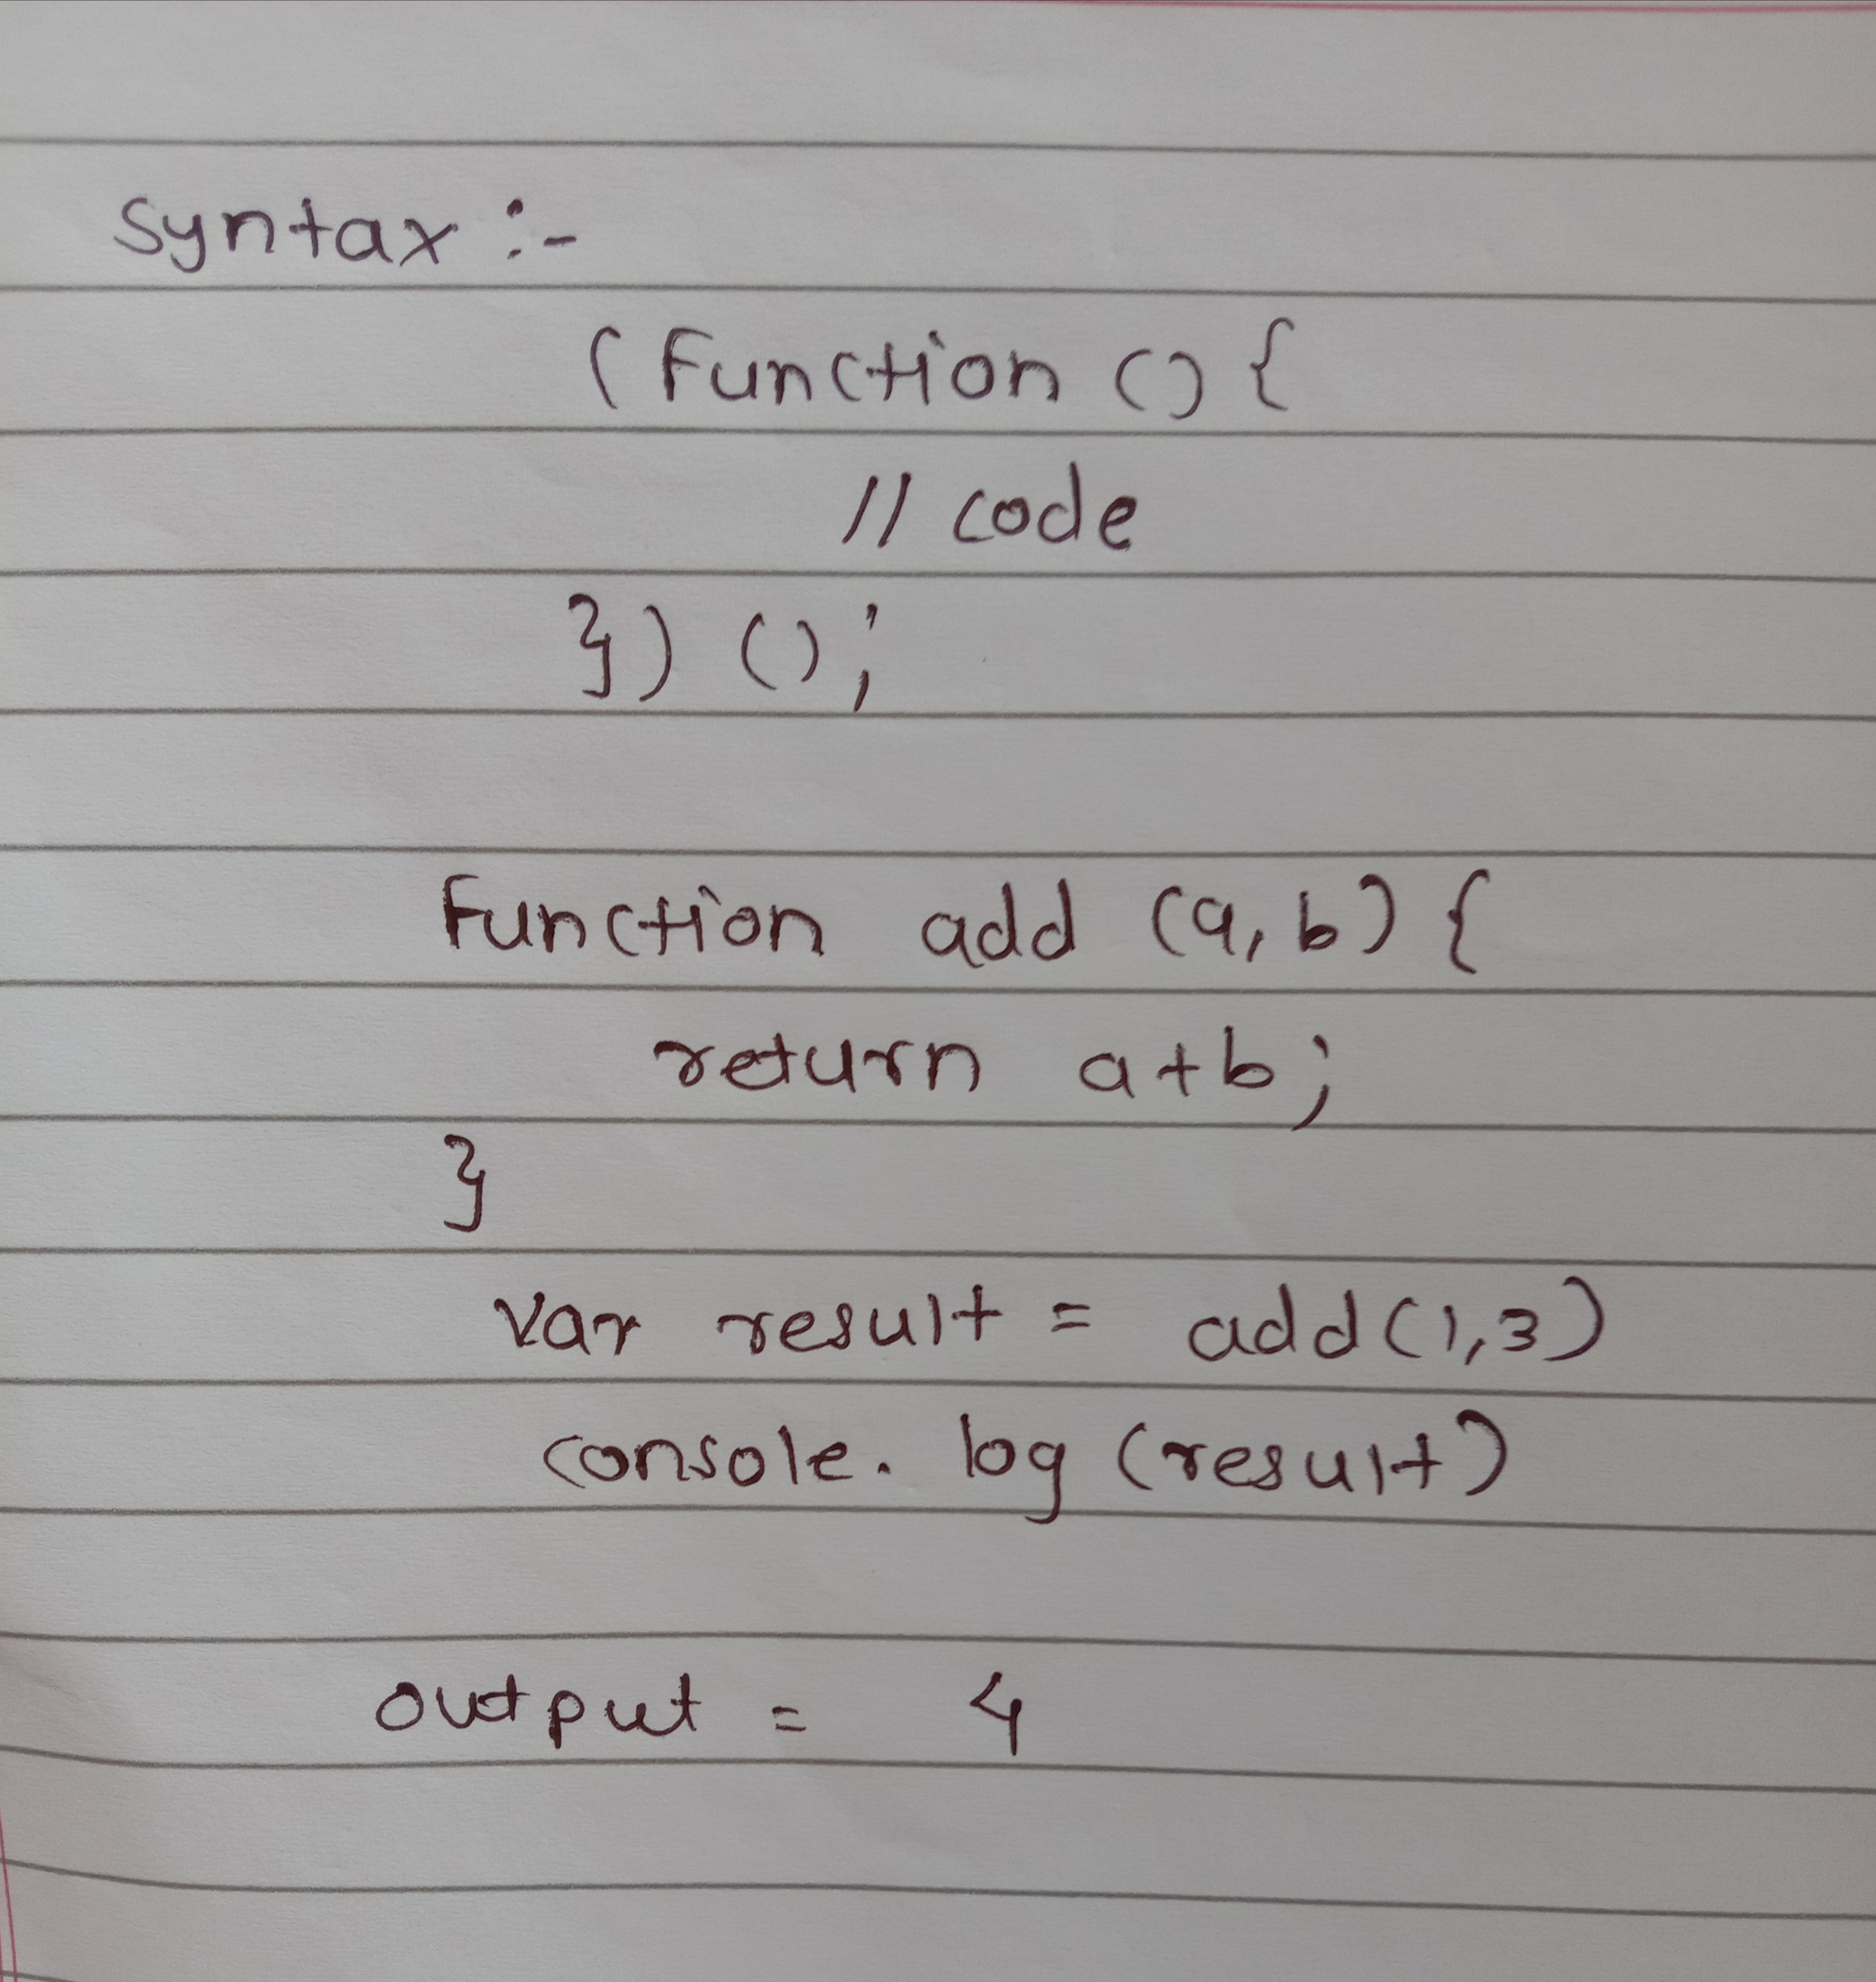 Syntax :-
(Function () {
// code
}) ();
Function add (a, b) {
return a+b;
}
Var result = add(1,3)
console. log (result)
output = 4